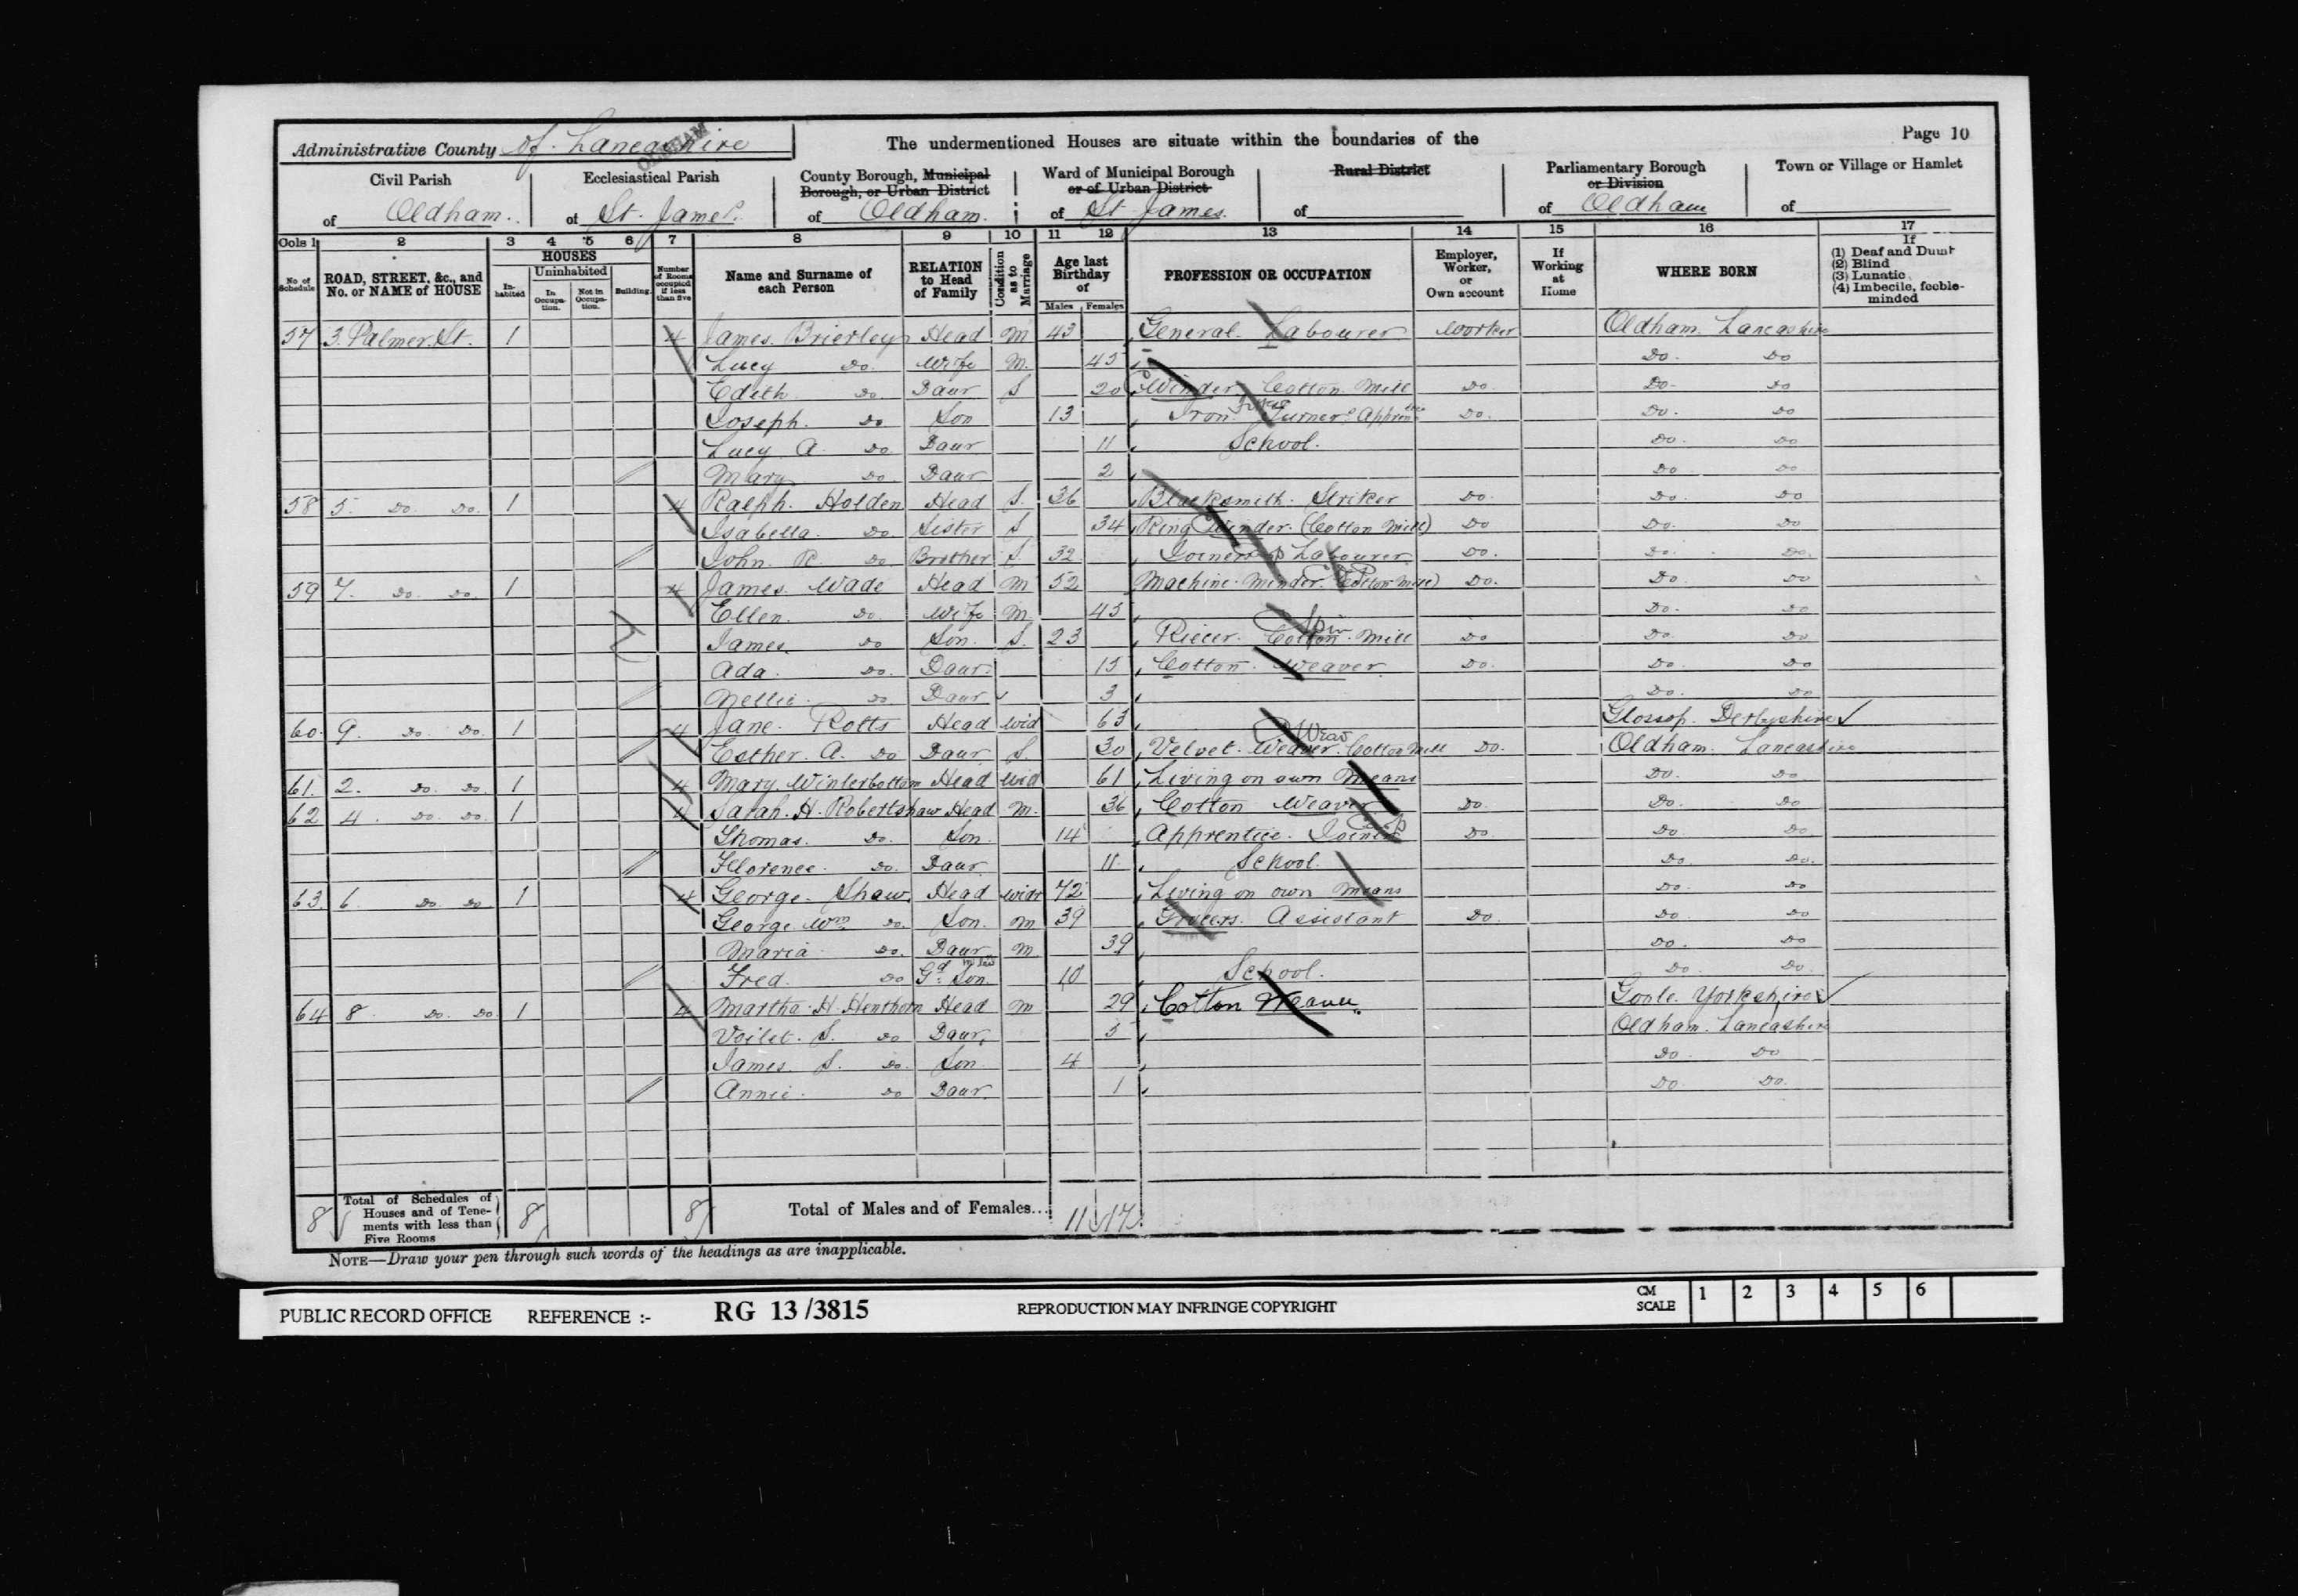 Administrative County of Lancashire
OLDHAM
The undermentioned Houses are situate within the boundaries of the
Page 10
Civil Parish of Oldham.
Ecclesiastical Parish of St. James.
County Borough, Municipal Borough, or Urban District of Oldham.
Ward of Municipal Borough or of Urban District of St James.
Rural District of
Parliamentary Borough or Division of Oldham
Town or Village or Hamlet of
Cols 1 2 3 4 5 6 7 8 9 10 11 12 13 14 15 16 17
No. of Schedule
ROAD, STREET, &c., and No. or NAME of HOUSE
HOUSES
Inhabited
Uninhabited
In Occupation.
Not in Occupation.
Building.
Number of Rooms occupied if less than five
Name and Surname of each Person
RELATION to Head of Family
Condition as to Marriage
Age last Birthday of
Males Females
PROFESSION OR OCCUPATION
Employer, Worker, or Own account
If Working at Home
WHERE BORN
If
(1) Deaf and Dumb
(2) Blind
(3) Lunatic
(4) Imbecile, feeble-minded
57 3. Palmer. St. 1 4 James. Brierley Head M 43 General. Labourer Worker Oldham. Lancashire
Lucy Do. Wife M. 45 Do. Do
Edith. Do. Daur S 20 Winder Cotton Mill Do. Do. Do
Joseph. Do Son 13 Iron Turner Appren Do. Do. Do
Lucy A. Do. Daur 11 School. Do. Do
Mary Do. Daur 2 Do Do
58 5. Do. Do. 1 4 Ralph. Holden Head S. 36 Blacksmith. Striker Do. Do. Do
Isabella. Do. Sister S 34 Ring Winder. (Cotton Mill) Do Do. Do
John. R. Do Brother S. 32 Joiners Labourer Do. Do. Do.
59 7. Do. Do. 1 4 James. Wade Head M 52 Machine. Minder. (Cotton Mill) Do. Do Do
Ellen. Do. Wife M 45 Do. Do
James. Do Son. S. 23 Piecer. Cotton. Mill Spin Do Do. Do
Ada. Do. Daur. 15 Cotton. Weaver Do. Do. Do
Nellie. Do Daur 3 Do. Do
60. 9. Do. Do. 1 4 Jane. Potts Head Wid 63 Glossop. Derbyshire
Esther. A. Do Daur S. 30 Velvet. Weaver. Cotton Mill Weav Do. Oldham. Lancashire
61. 2. Do. Do. 1 4 Mary Winterbottom Head Wid 61 Living on own Means Do. Do.
62 4. Do. Do. 1 4 Sarah. H. Robertshaw Head M. 36 Cotton Weaver Do. Do. Do
Thomas. Do. Son. 14 Apprentice. Joiner Do. Do. Do.
Florence. Do. Daur 11 School. Do. Do.
63. 6. Do Do 1 4 George. Shaw. Head Widr 72 Living on own Means Do. Do
George. Wm Do. Son. M 39 Grocers. Assistant Do. Do. Do
Maria. Do. Daur in law M 39 Do. Do
Fred. Do Gd Son. 10 School. Do Do.
64 8. Do. Do. 1 4 Martha. H. Henthorn Head M 29 Cotton Weaver Goole. Yorkshire
Voilet. S. Do Daur. 5 Oldham. Lancashire
James S. Do. Son. 4 Do. Do
Annie. Do Daur. 1 Do Do.
8 Total of Schedules of Houses and of Tenements with less than Five Rooms 8 8 Total of Males and of Females... 11 17
NOTE—Draw your pen through such words of the headings as are inapplicable.
PUBLIC RECORD OFFICE REFERENCE :- RG 13/3815 REPRODUCTION MAY INFRINGE COPYRIGHT CM SCALE 1 2 3 4 5 6